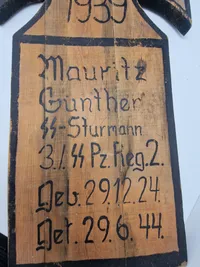 1939
Mauritz
Günther
ᛋᛋ-Sturmann
3./ᛋᛋ Pz. Reg. 2.
Gev. 29.12.24.
Get. 29.6.44.